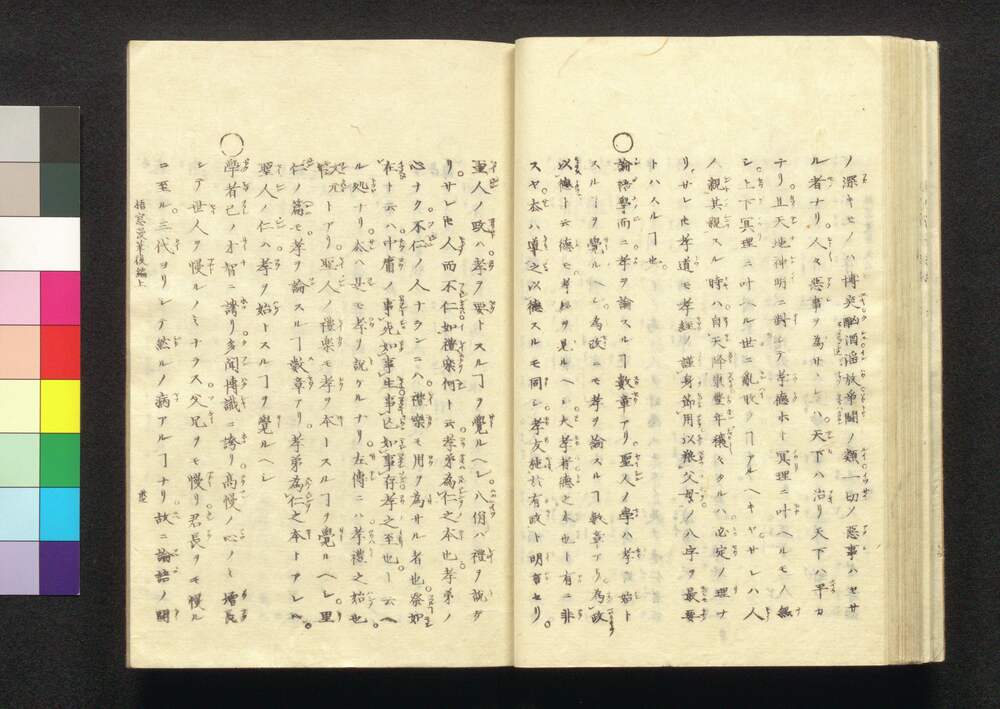 ノ深キモノハ博奕酗酒淫放爭鬪ノ類一切ノ惡事ハセサ
ル者ナリ人々惡事ヲ為サ ハ天下ハ治リ天下ハ平カ
ナリ且天地神明ニ對シテ孝德ホト冥理ニ叶ヘルモノ無
シ上下冥理ニ叶ヘル世ニ亂敗ノヿアルヘキヤサレハ人
ノ親其親スル時ハ自天降康豐年穰々タルハ必定ノ理ナ
リサレ𪜈孝道モ孝經ノ謹身節用以養父母ノ八字ヲ最要
トハスルヿ也
○論語學而ニ孝ヲ論スルヿ數章アリ聖人ノ學ハ孝ヲ始ト
スルヿヲ覺ルヘシ為政ニモ孝ヲ論スルヿ數章アリ為政
以德ト云德モ孝 ヲ見ルヘシ大孝 德之本也ト有ニ非
スヤ本ハ導之以德スルモ同シ孝友施於有政ト明言セリ
聖人ノ政ハ孝ヲ要トスルヿヲ覺ルヘシ八佾ハ禮ヲ說ケ
リサレ𪜈人而不仁如禮樂何ト云孝弟為仁之本也孝弟ノ
心ナク不仁ノ人ナランニハ禮樂モ用ヲ為サル者也祭如
在ト云ハ中庸ノ事死如事生事亡如事存孝之至也ト云ヘ
ル処ナリ本ハ是モ孝ヲ說ケルナリ左傳ニハ孝禮之始也
トアリ聖人ノ禮樂モ孝ヲ本トスルヿヲ覺ルヘシ里
仁ノ篇モ孝ヲ論スルヿ數章アリ孝弟為仁之本トアレハ
聖人ノ仁ハ孝ヲ始トスルヿヲ覺ルヘシ
○學者己ノ才智ニ誇リ多聞博識ニ誇リ高慢ノ心ノミ增長
シテ世人ヲ慢ルノミナラス父兄ヲモ慢リ君長ヲモ慢ル
ニ至ル三代ヨリシテ然ルノ病アルヿナリ故ニ論語ノ開
梧窓漫筆後編上